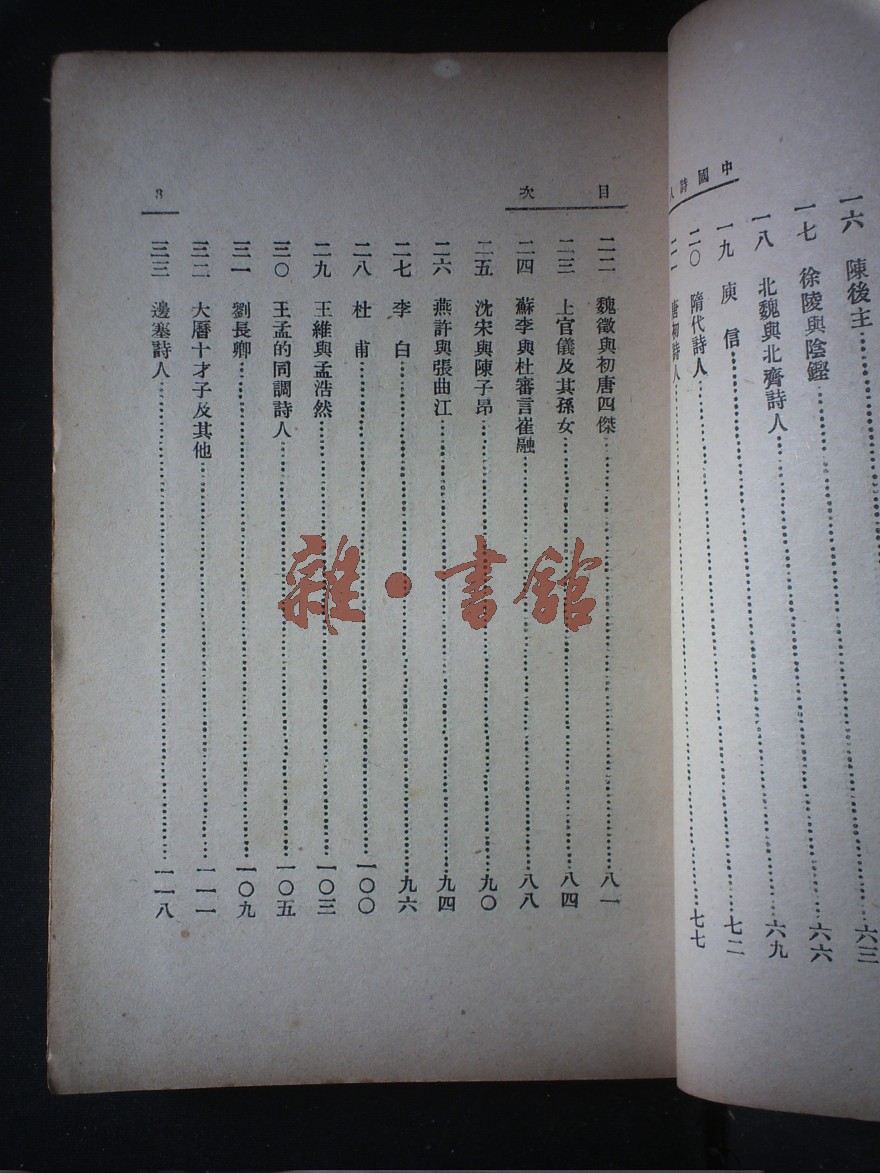 中國詩
一六 陳後主 六三
一七 徐陵與陰鏗 六六
一八 北魏與北齊詩人 六九
一九 庾信 七二
二〇 隋代詩人 七七
唐初詩人
目次
3
二二 魏徵與初唐四傑 八一
二三 上官儀及其孫女 八四
二四 蘇李與杜審言崔融 八八
二五 沈宋與陳子昂 九〇
二六 燕許與張曲江 九四
二七 李白 九六
二八 杜甫 一〇〇
二九 王維與孟浩然 一〇三
三〇 王孟的同調詩人 一〇五
三一 劉長卿 一〇九
三二 大曆十才子及其他 一一一
三三 邊塞詩人 一一八
雜·書館